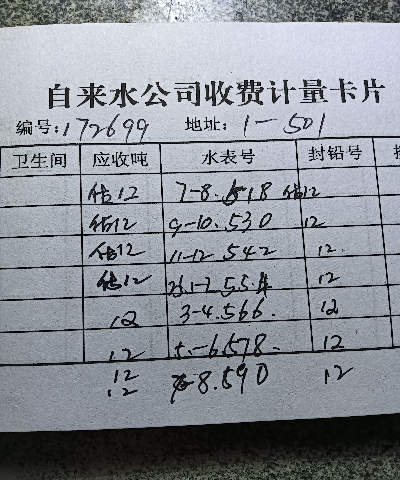 自来水公司收费计量卡片
编号:172699 地址:1-501
卫生间 应收吨 水表号 封铅号
估12 7-8.518 估12
估12 9-10.530 12
估12 11-12 542 12.
估12 23.1-2 554 12
12 3-4.566. 12
12 5-6578. 12
12 7-8.590 12
12